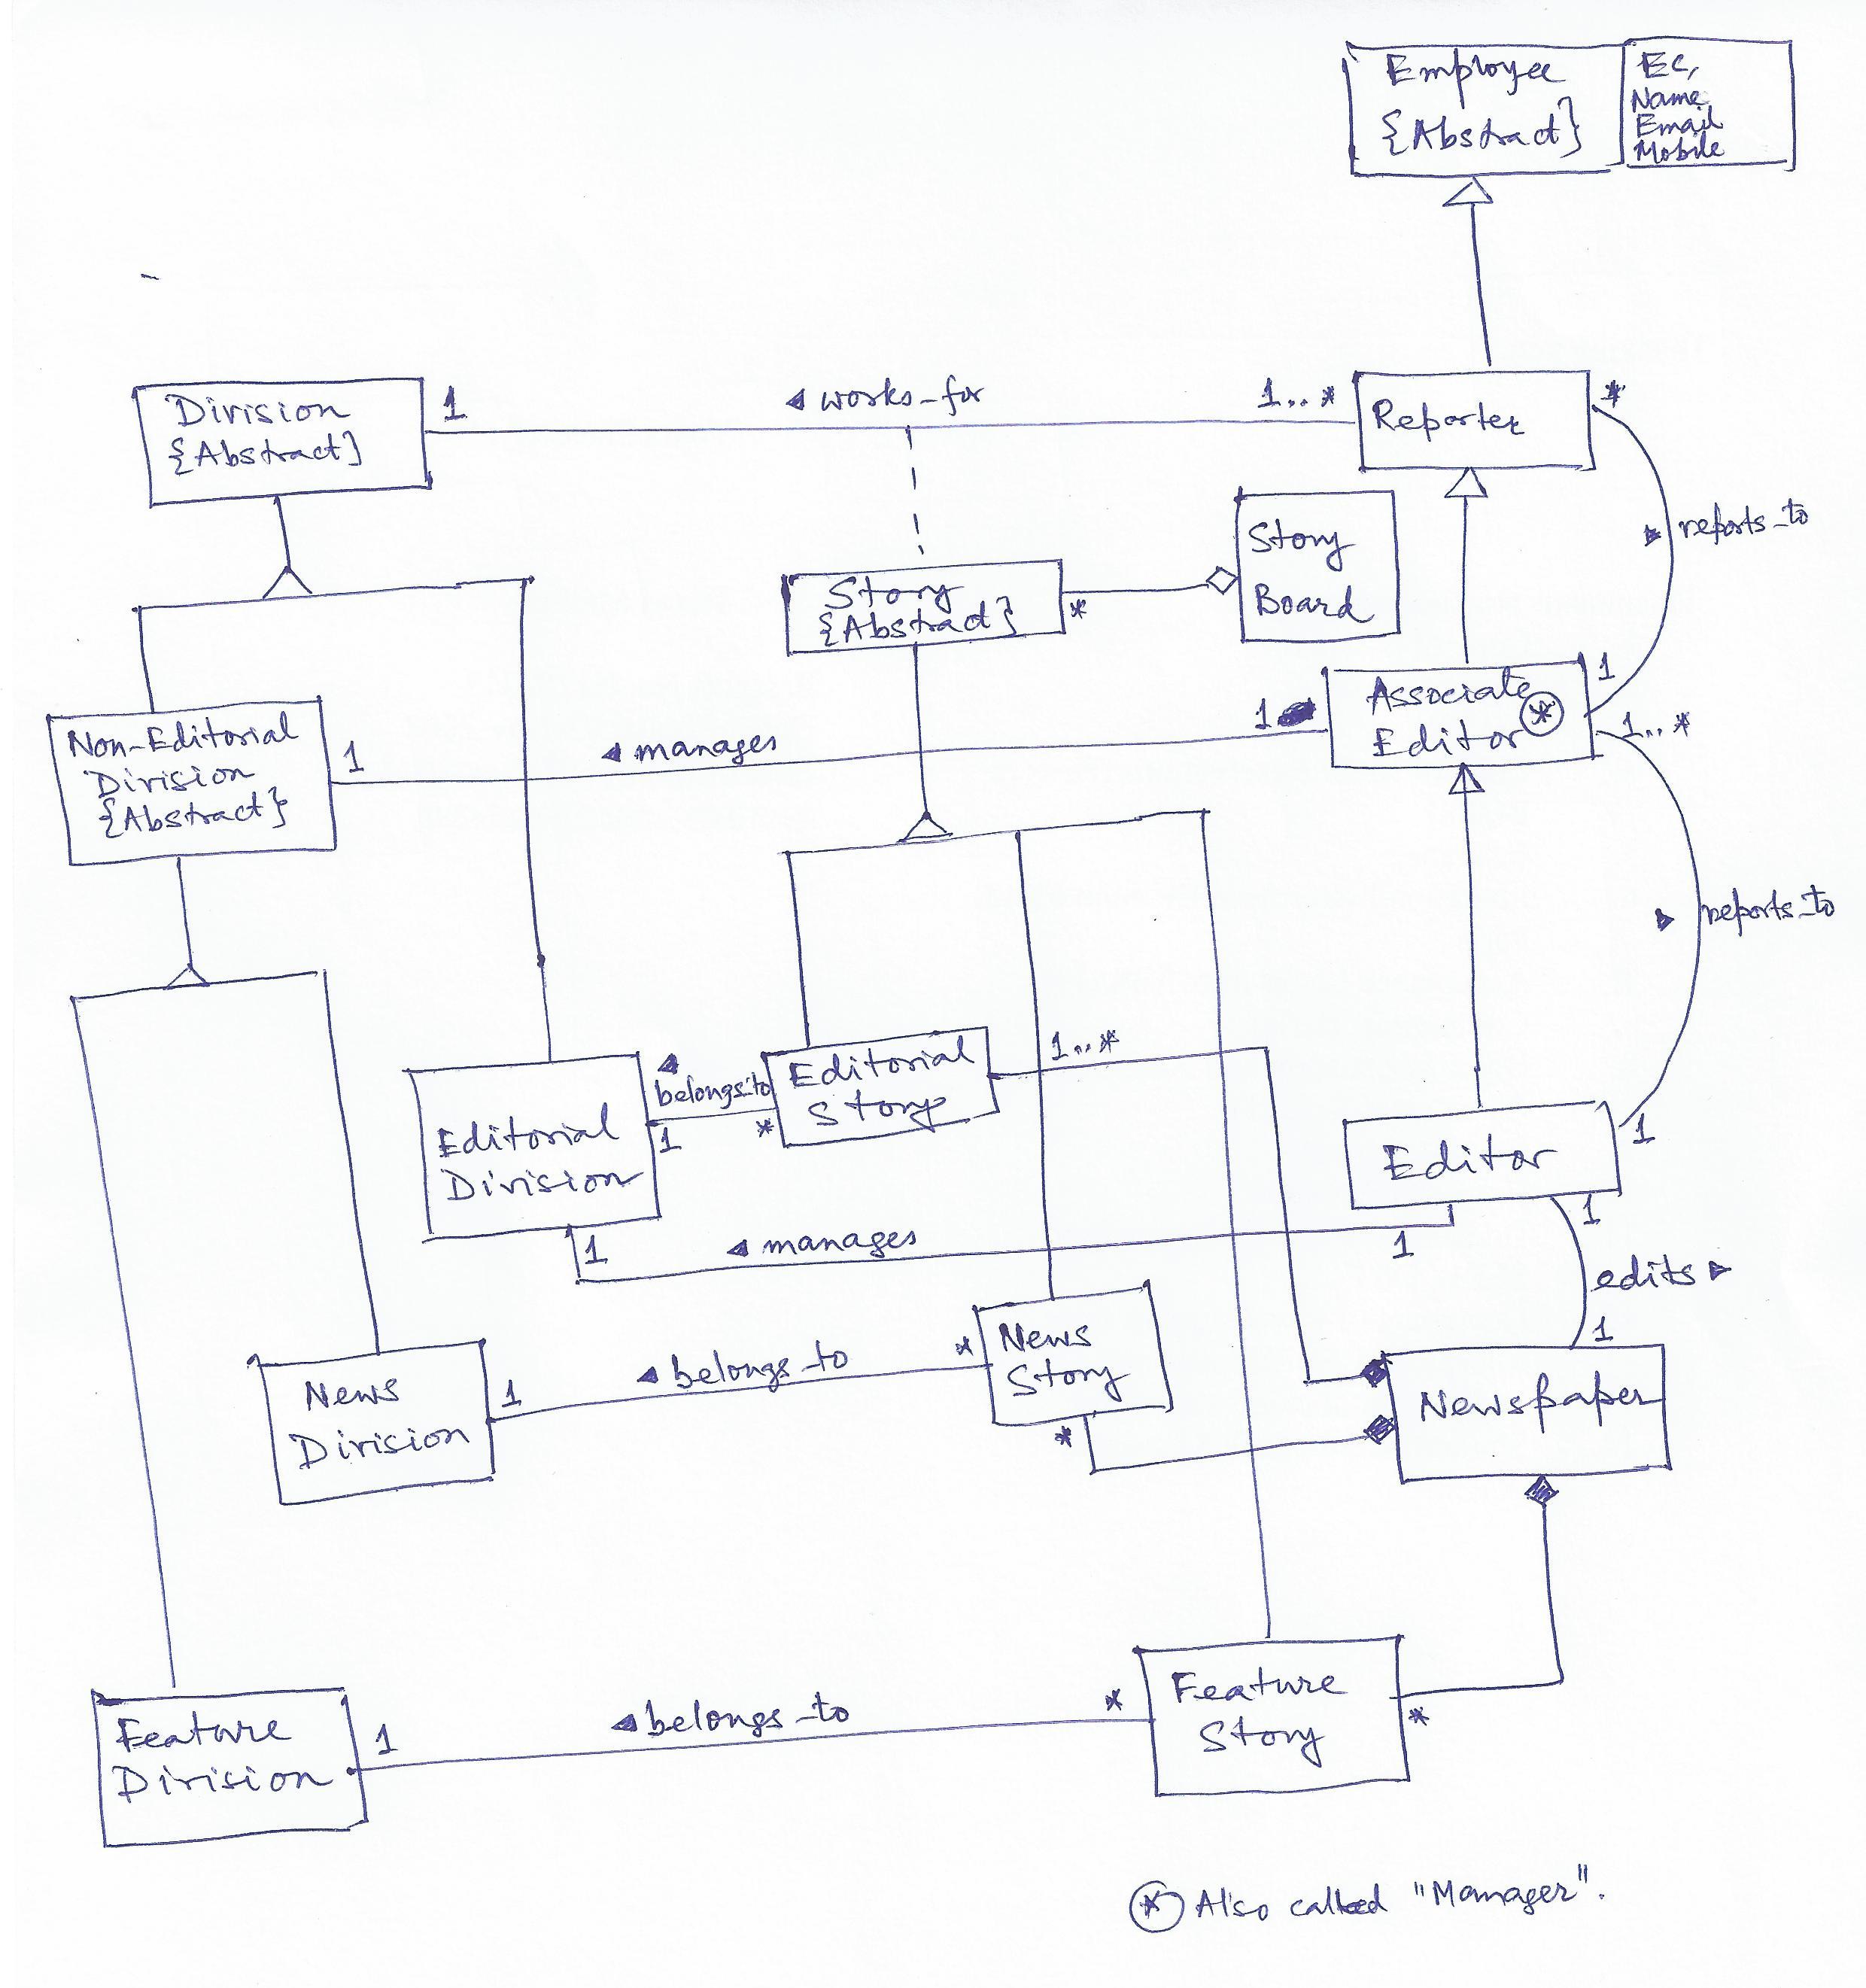 Employee
{Abstract}
EC,
Name
Email
Mobile
Division
{Abstract}
1
◄ works-for
1..*
Reporter
*
► reports-to
Story
Board
Story
{Abstract}
*
Associate
Editor *
1
1..*
1
◄ manages
1
Non-Editorial
Division
{Abstract}
► reports-to
Editorial
Division
◄
belongs-to
1
*
Editorial
Story
1..*
Editor
1
1
1
◄ manages
1
edits ►
1
News
Division
1
◄ belongs-to
*
News
Story
*
Newspaper
Feature
Division
1
◄ belongs-to
*
Feature
Story
*
* Also called "Manager".